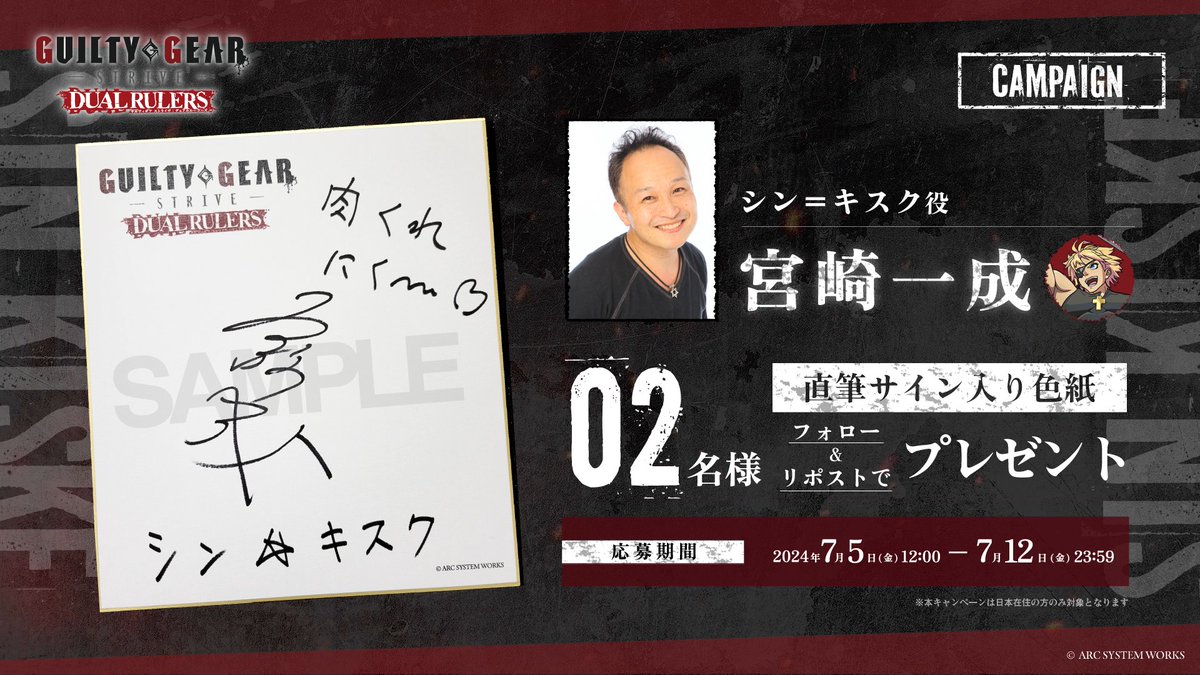 GUILTY GEAR
STRIVE
DUAL RULERS
CAMPAIGN
GUILTY GEAR
STRIVE
DUAL RULERS
肉くれ
にく〜
SAMPLE
シン☆キスク
© ARC SYSTEM WORKS
シン=キスク役
宮崎一成
02名様
直筆サイン入り色紙
フォロー
&
リポストで
プレゼント
応募期間
2024年7月5日(金)12:00 − 7月12日(金)23:59
※本キャンペーンは日本在住の方のみ対象となります
© ARC SYSTEM WORKS